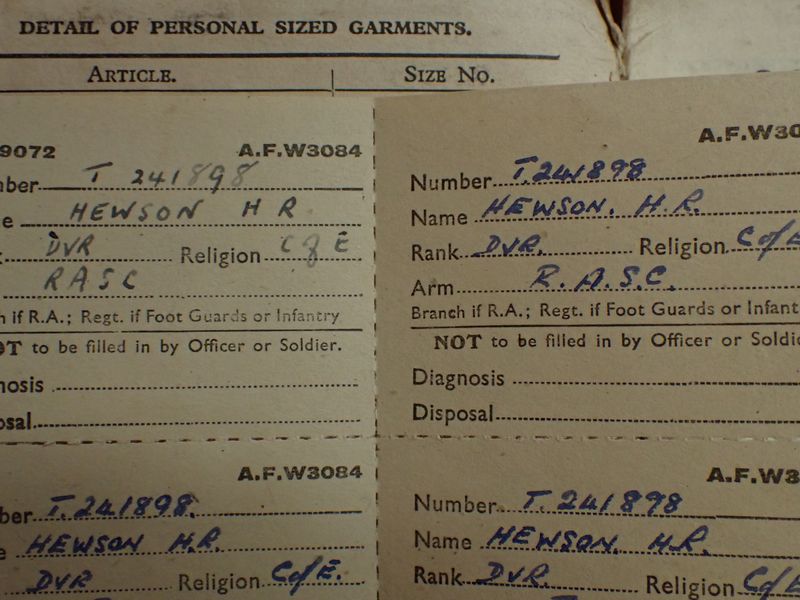 DETAIL OF PERSONAL SIZED GARMENTS.
ARTICLE. SIZE No.
9072 A.F.W3084
ber T 241898
e HEWSON H R
DVR Religion C of E
RASC
h if R.A.; Regt. if Foot Guards or Infantry
OT to be filled in by Officer or Soldier.
nosis
osal
A.F.W30
Number T.241898
Name HEWSON. H.R.
Rank DVR. Religion C of E
Arm R.A.S.C.
Branch if R.A.; Regt. if Foot Guards or Infant
NOT to be filled in by Officer or Soldie
Diagnosis
Disposal
A.F.W3084
ber T.241898.
e HEWSON H.R.
DVR Religion C of E.
A.F.W3
Number T.241898
Name HEWSON. H.R.
Rank DVR. Religion C of E